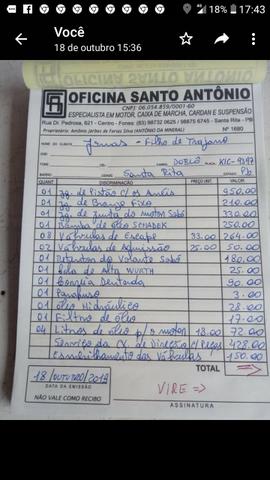 18% 17:43
Você
18 de outubro 15:36
OFICINA SANTO ANTÔNIO
CNPJ: 06.054.859/0001-60
ESPECIALISTA EM MOTOR, CAIXA DE MARCHA, CARDAN E SUSPENSÃO
Rua Dr. Pedrosa, 621 - Centro - Fones: (83) 98732 0625 / 98875 6745 - Santa Rita - PB
Proprietário: Antônio Jarbas de Farias Silva (ANTÔNIO DA MINERAL)
Nº 1680
NOME DO CLIENTE Jonas - Filho de Trajano
END.:
FONE: CEL.: CARRO DOBLO PLACA
BAIRRO CIDADE Santa Rita ESTADO Pb
QUANT DISCRIMINAÇÃO PREÇO UNIT. VALOR
01 Jg. de Pistão c/ os Anéis 950.00
01 Jg. de Bronze Fixo 210.00
01 Jg. de Junta do motor Sabó 330.00
01 Bomba de óleo SCHADEK 250.00
08 Válvulas de Escape 33.00 264.00
02 Válvulas de Admissão 25.00 50.00
01 Retentor do Volante Sabó 180.00
01 Cola de Alta WURTH 25.00
01 Correia Dentada 90.00
01 Parafuso 3.00
01 óleo Hidráulico 28.00
01 Filtro de óleo 17.00
04 Litros de óleo p/ o motor 18.00 72.00
Serviço da CX. de Direção c/ Peças 428.00
Esmerilhamento das Válvulas 150.00
TOTAL
18/outubro/2019
DATA DA EMISSÃO
NÃO VALE COMO RECIBO
VIRE ⇒
ASSINATURA